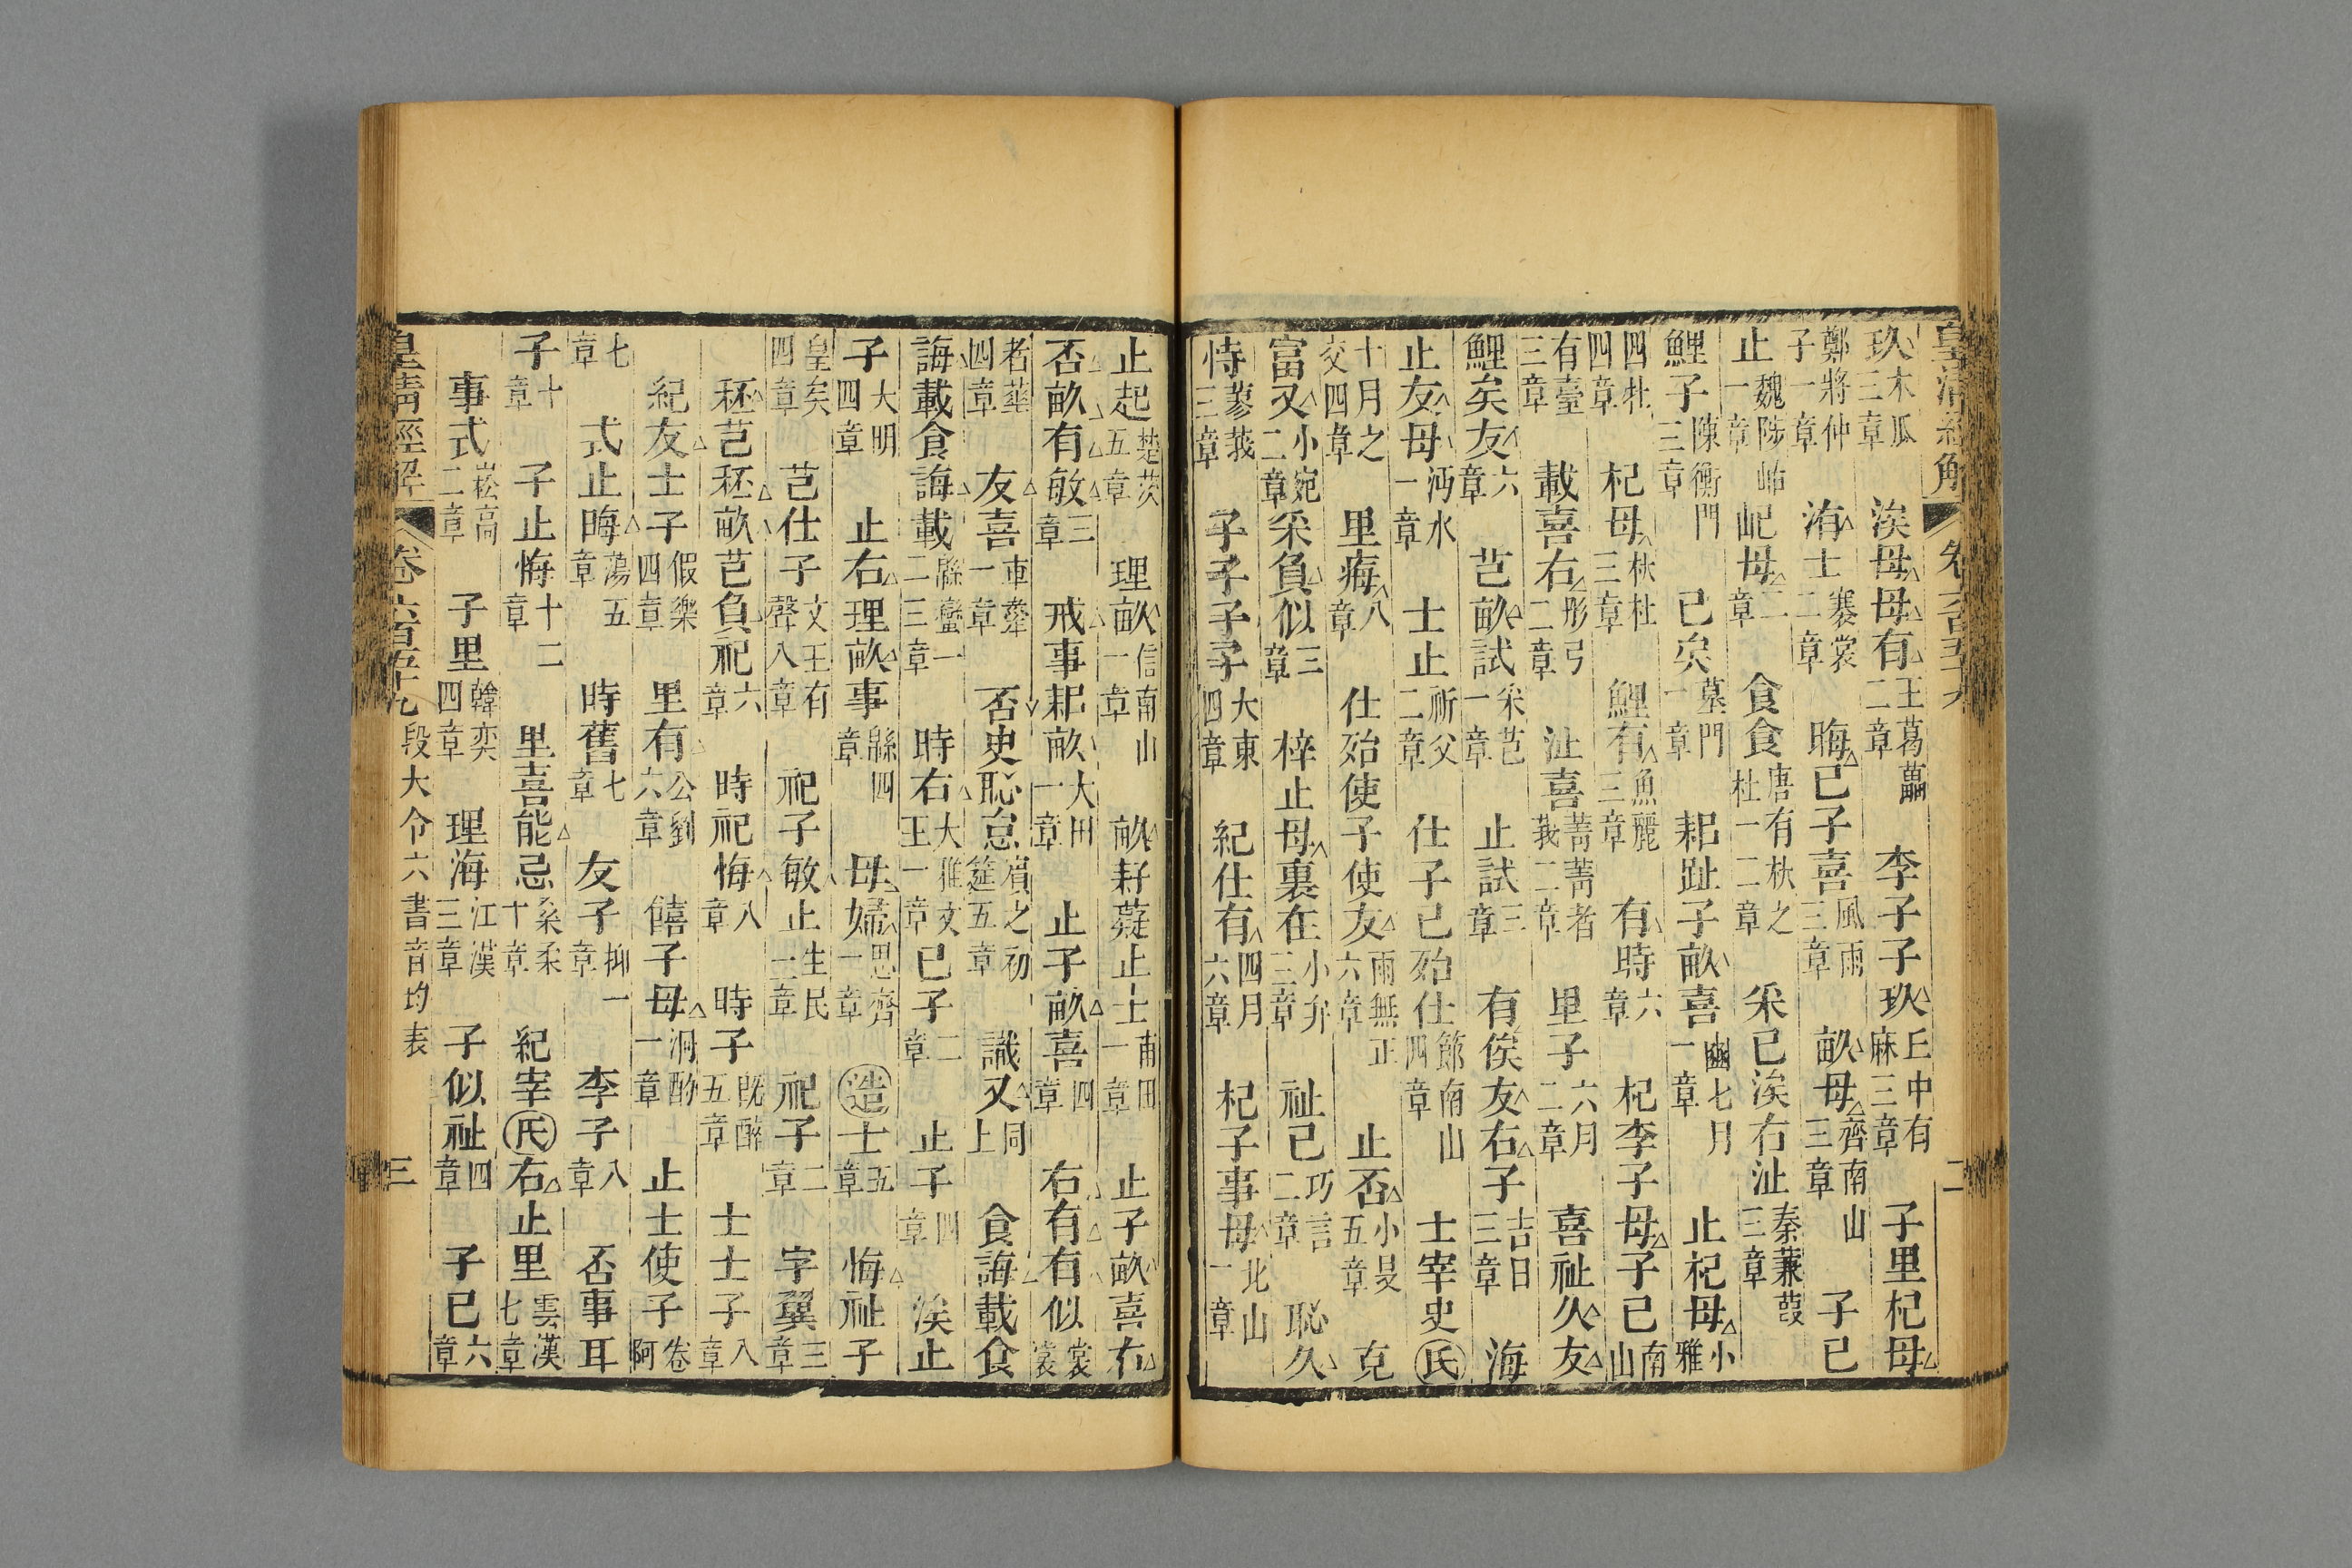 皇清經解 卷六百五十九 二
玖木瓜三章 涘母母有王葛藟二章 李子子玖丘中有麻三章 子里杞母
鄭將仲子一章 洧士褰裳二章 晦已子喜風雨三章 畝母齊南山三章 子已
止魏陟岵一章 屺母二章 食食唐有杕之杜一二章 采已涘右沚秦蒹葭三章
鯉子陳衡門三章 已矣墓門一章 耜趾子畝喜豳七月一章 止杞母小雅
四牡四章 杞母杕杜三章 鯉有魚麗三章 有時六章 杞李子母子已南山
有臺三章 載喜右彤弓二章 沚喜菁菁者莪二章 里子六月二章 喜祉久友
鯉矣友六章 芑畝試采芑一章 止試三章 有俟友右子吉日三章 海
止友母沔水一章 士止祈父二章 仕子已殆仕節南山四章 士宰史氏
十月之交四章 里痗八章 仕殆使子使友雨無正六章 止否小旻五章 克
富又小宛二章 采負似三章 梓止母裏在小弁三章 祉已巧言二章 恥久
恃蓼莪三章 子子子子大東四章 紀仕有四月六章 杞子事母北山一章
止起楚茨五章 理畝信南山一章 畝耔薿止士甫田一章 止子畝喜右
否畝有敏三章 戒事耜畝大田一章 止子畝喜四章 右有有似裳裳
者華四章 友喜車舝一章 否史恥怠賓之初筵五章 識又同上 食誨載食
誨載食誨載緜蠻一二三章 時右大雅文王一章 已子二章 止子四章 涘止
子大明四章 止右理畝事緜四章 母婦思齊一章 造士五章 悔祉子
皇矣四章 芑仕子文王有聲八章 祀子敏止生民一章 祀子二章 字翼三章
秠芑秠畝芑負祀六章 時祀悔八章 時子既醉五章 士士子八章
紀友士子假樂四章 里有公劉六章 饎子母泂酌一章 止士使子卷阿
七章 式止晦蕩五章 時舊七章 友子抑一章 李子八章 否事耳
子十章 子止悔十二章 里喜能忌桑柔十章 紀宰氏右止里雲漢七章
事式崧高二章 子里韓奕四章 理海江漢三章 子似祉四章 子已六章
皇清經解 卷六百五十九 段大令六書音均表 三